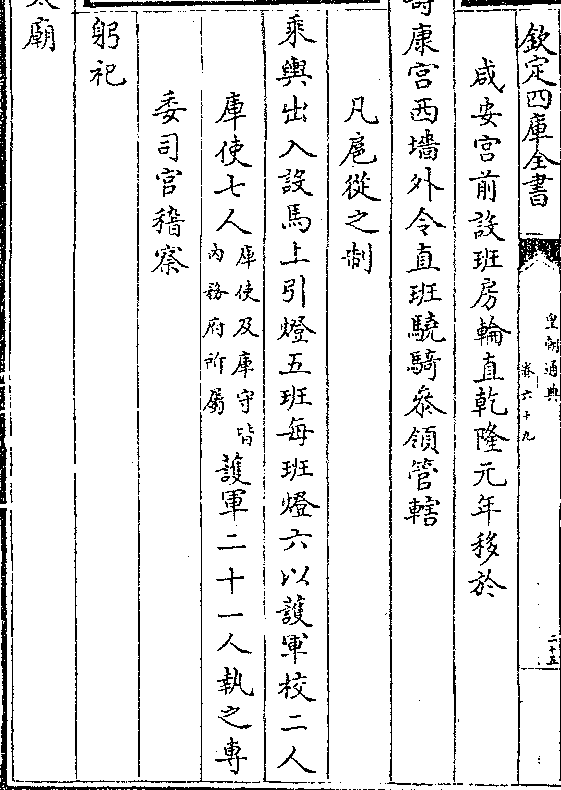 欽定四庫全書
皇朝通典
卷六十九
二十五
咸安宫前設班房輪直乾隆元年移於
康宫西墻外令直班驍騎叅領管轄
凡扈從之制
乘輿出入設馬上引燈五班每班燈六以護軍校二人
庫使七人庫使及庫守皆内務府所屬護軍二十一人執之專
委司官稽察
躬祀
廟